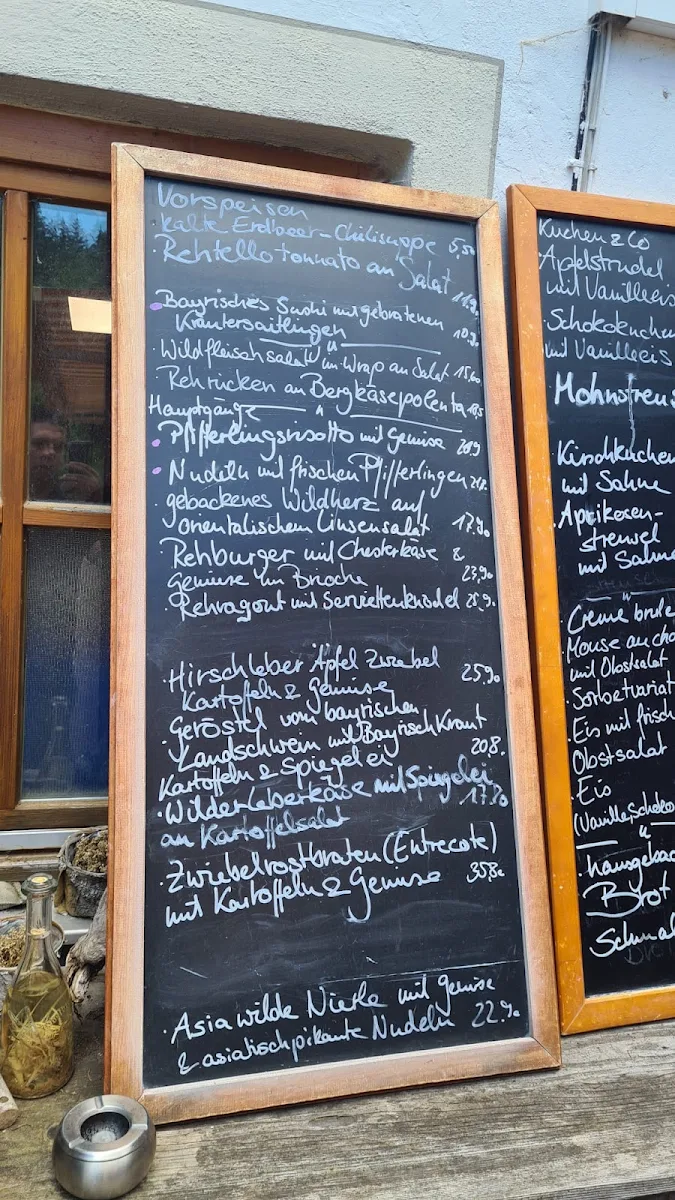 Vorspeisen
· kalte Erdbeer-Chilisuppe 5,50
· Rehtello tonnato an Salat 11.9.
· Bayrisches Sushi mit gebratenen
Kräutersaitlingen 10.90
· Wildfleischsalat im Wrap an Salat
· Rehrücken an Bergkäsepolenta
Hauptgänge
· Pfifferlingsrisotto mit Gemüse
· Nudeln mit frischen Pfifferlingen
gebackenes Wildherz auf
· orientalischem Linsensalat 17.90
· Rehburger mit Chesterkäse &
Gemüse im Brioche 23,90
· Rehragout mit Serviettenknödel
· Hirschleber Apfel Zwiebel
Kartoffeln & Gemüse 25,90
· Geröstel vom bayrischen
Landschwein mit BayrischKraut
Kartoffeln & Spiegelei 20,8.
· Wilderleberkäse mit Spiegelei
an Kartoffelsalat 17.80
· Zwiebelrostbraten (Entrecote)
mit Kartoffeln & Gemüse
· Asia wilde Nierle mit Gemüse
& asiatischpikante Nudeln 22.90
Kuchen & Co
· Apfelstrudel
mit Vanilleeis
· Schokokuchen
mit Vanilleeis
Mohnstreus
· Kirschkuchen
mit Sahne
· Aprikosen-
streusel
mit Sahne
· Creme brule
Mouse au cho
mit Obstsalat
· Sorbetvariat
· Eis mit frisch
Obstsalat
· Eis
(Vanille, Schoko
· hausgebac
Brot
Schmal